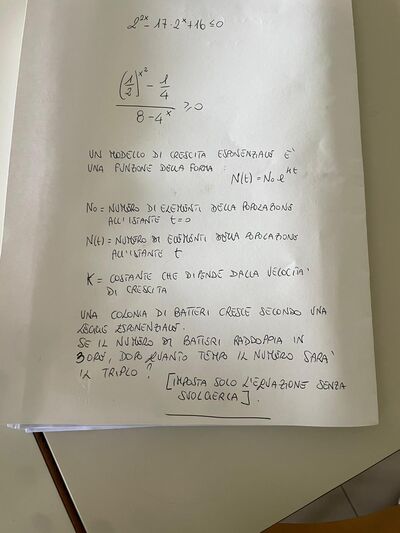 2^{2x} - 17 · 2^x + 16 ≤ 0
((1/2)^{x^2} - 1/4) / (8 - 4^x) ≥ 0
UN MODELLO DI CRESCITA ESPONENZIALE È
UNA FUNZIONE DELLA FORMA : N(t) = N₀ e^{kt}
N₀ = NUMERO DI ELEMENTI DELLA POPOLAZIONE
ALL'ISTANTE t=0
N(t) = NUMERO DI ELEMENTI DELLA POPOLAZIONE
ALL'ISTANTE t
K = COSTANTE CHE DIPENDE DALLA VELOCITA'
DI CRESCITA
UNA COLONIA DI BATTERI CRESCE SECONDO UNA
LEGGE ESPONENZIALE.
SE IL NUMERO DI BATTERI RADDOPPIA IN
3 ORE, DOPO QUANTO TEMPO IL NUMERO SARA'
IL TRIPLO?
[IMPOSTA SOLO L'EQUAZIONE SENZA
SVOLGERLA].